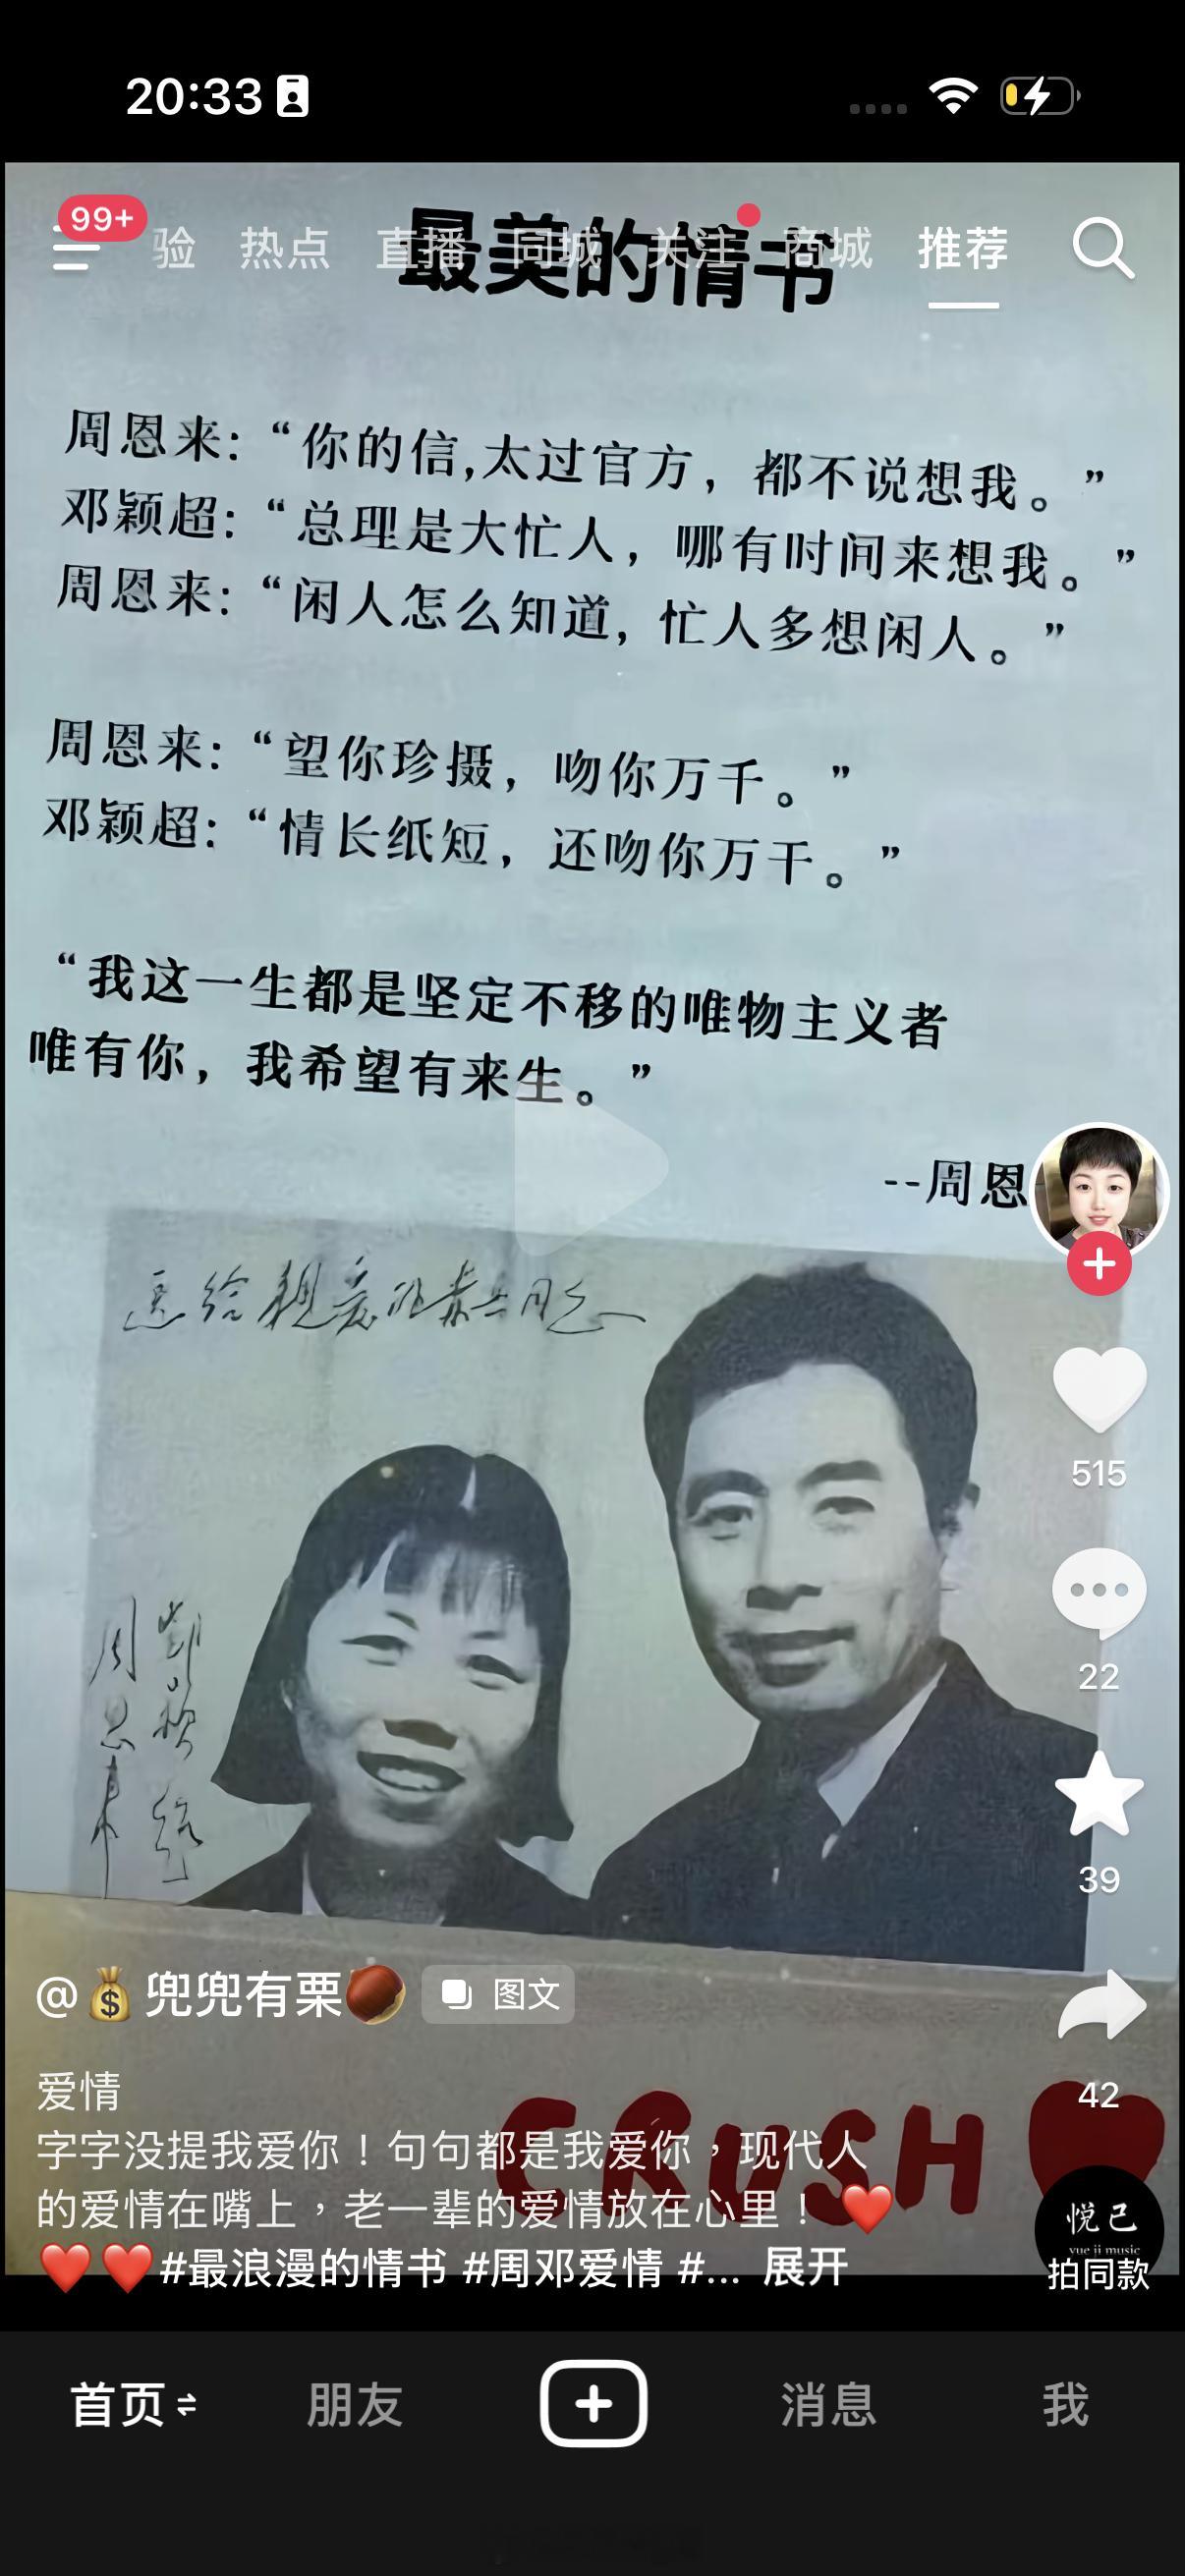 20:33
99+
验 热点 直播 同城 关注 商城 推荐
最美的情书
周恩来:“你的信,太过官方，都不说想我。”
邓颖超:“总理是大忙人，哪有时间来想我。”
周恩来:“闲人怎么知道，忙人多想闲人。”
周恩来:“望你珍摄，吻你万千。”
邓颖超:“情长纸短，还吻你万干。”
“我这一生都是坚定不移的唯物主义者
唯有你，我希望有来生。”
--周恩
周恩来
邓颖超
515
22
39
42
@兜兜有栗 图文
爱情
字字没提我爱你！句句都是我爱你，现代人
的爱情在嘴上，老一辈的爱情放在心里！
#最浪漫的情书 #周邓爱情 #... 展开
CRUSH
悦己
yue ji music
拍同款
首页 朋友 消息 我